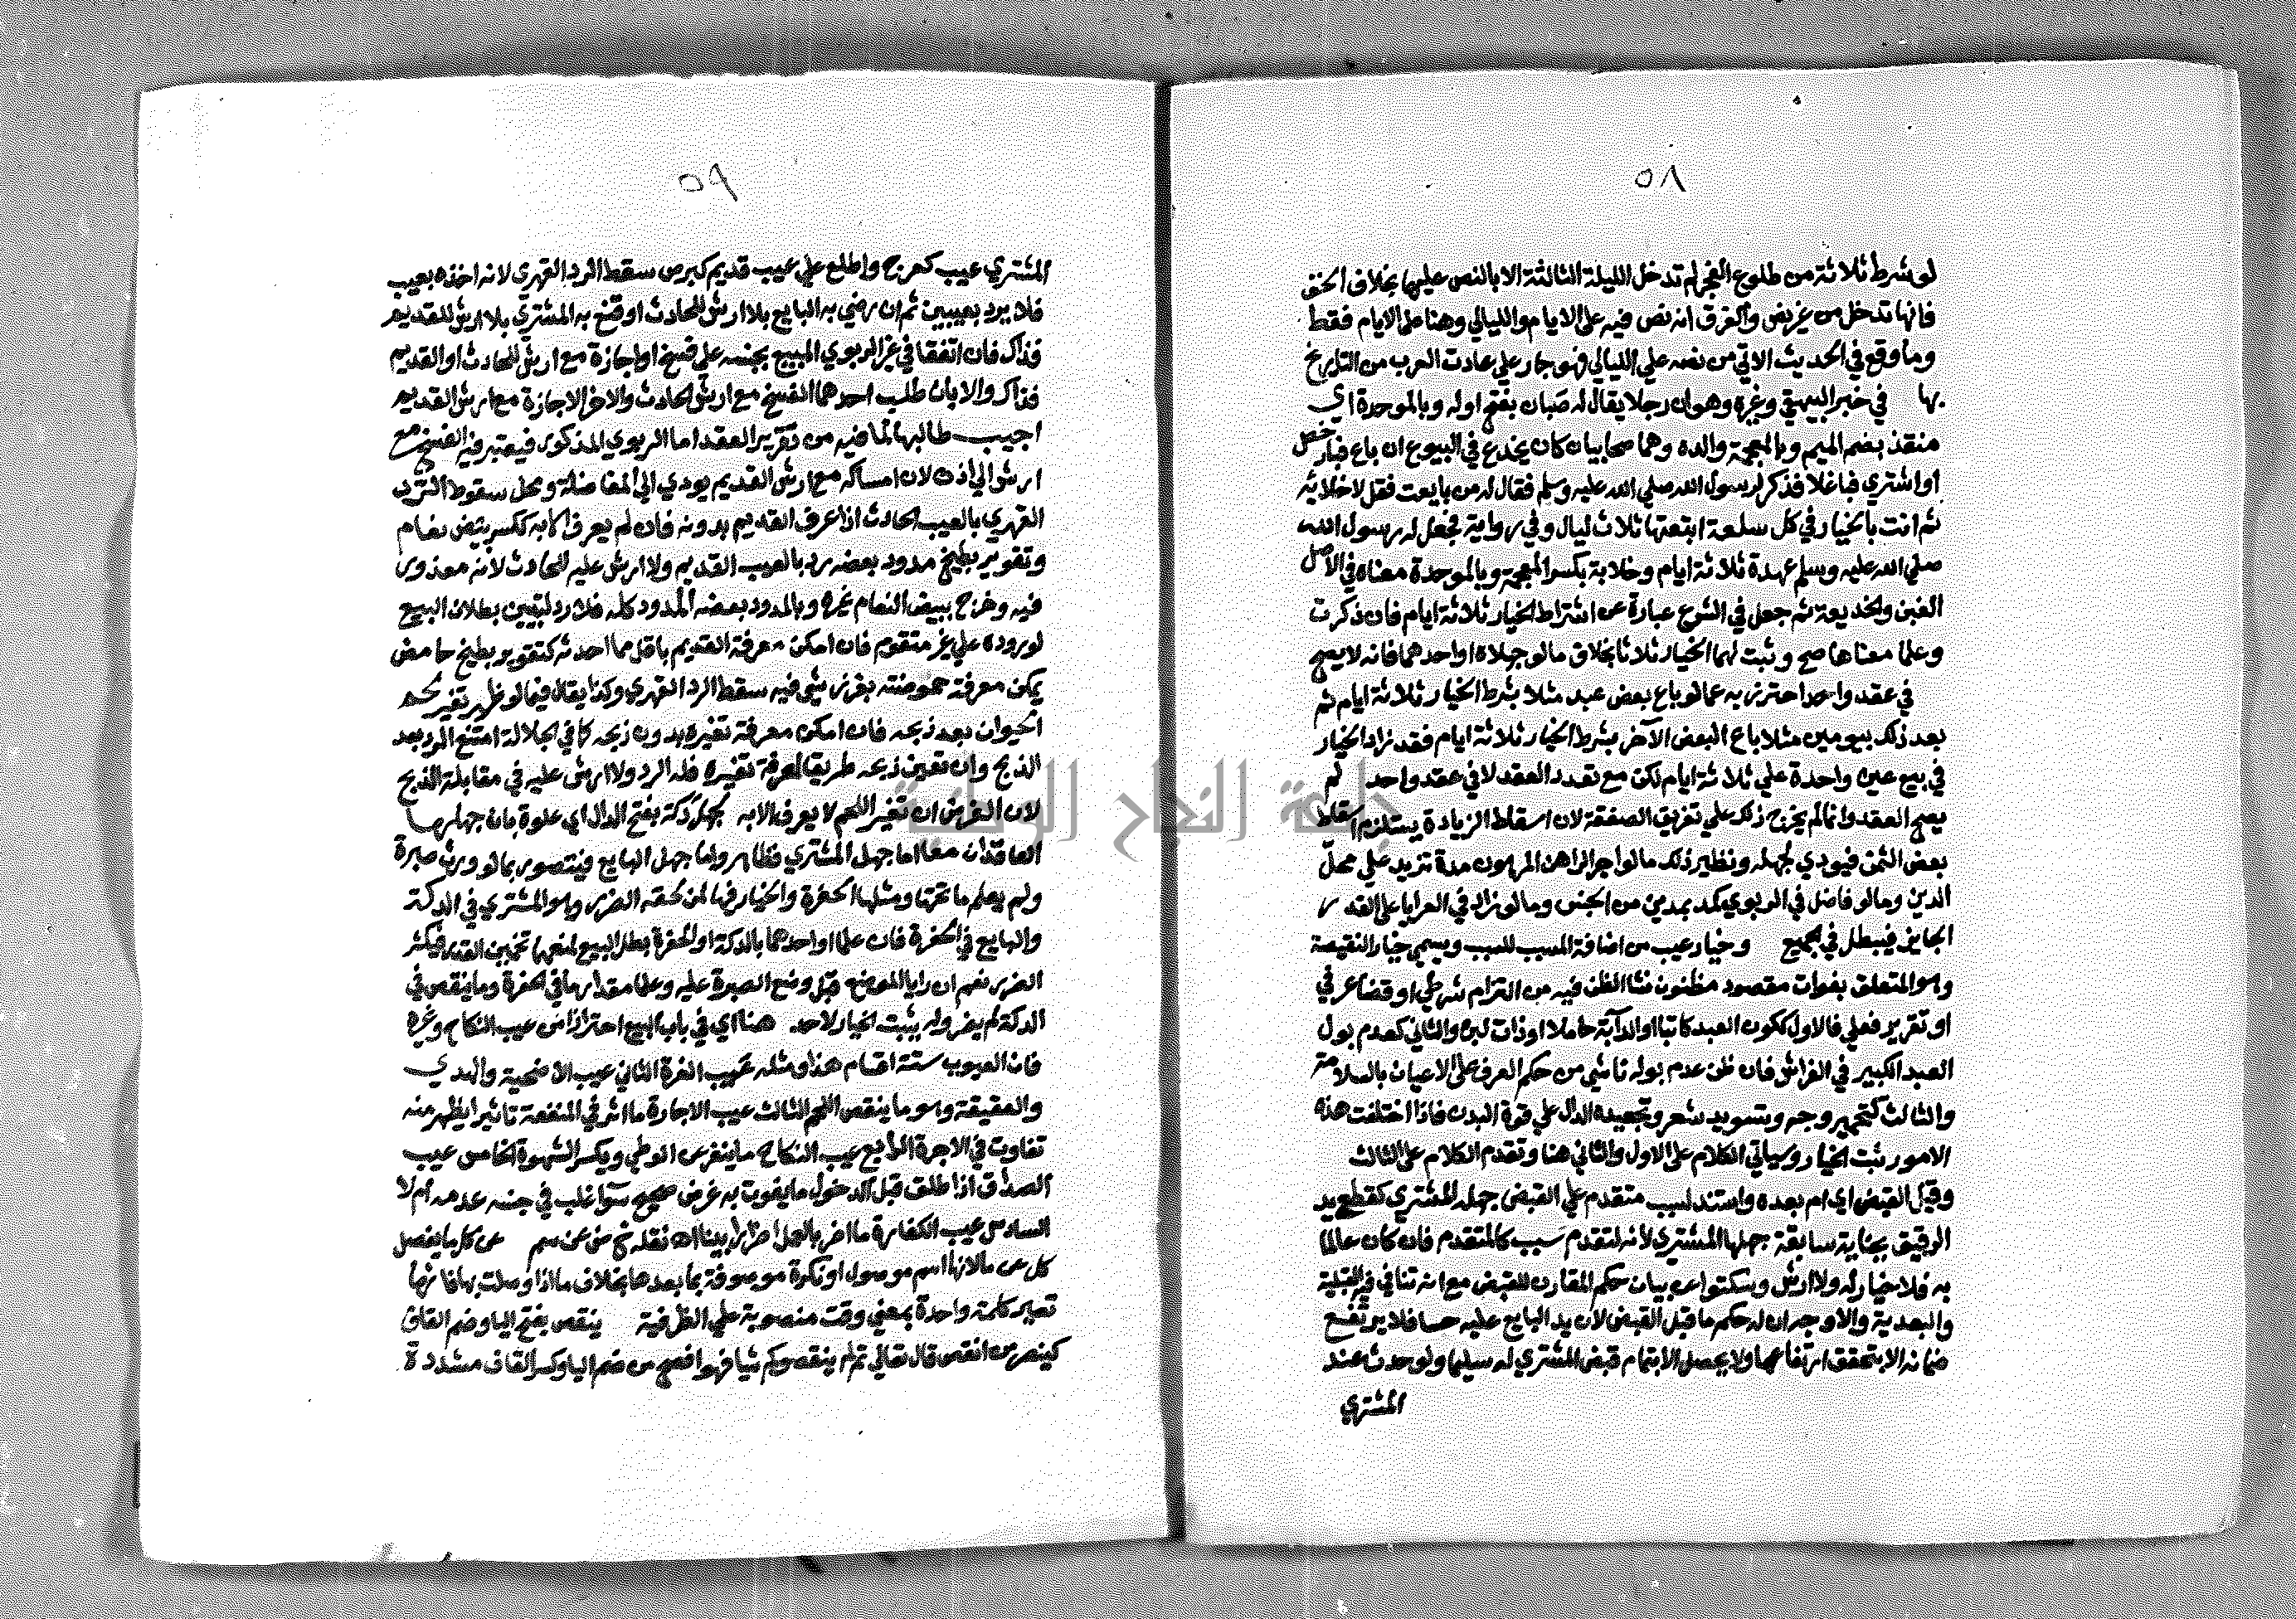 ٥٨
لو شرط ثلاثة من طلوع الفجر لم تدخل الليلة الثالثة الا بالنص عليها بخلاف الخف
فانها تدخل من غير نص والفرق انه نص فيه على الايام والليالي وهنا على الايام فقط
وما وقع في الحديث الاتي من نصه علي الليالي فهو جار علي عادت العرب من التاريخ
بها في خبر البيهقي وغيره وهو ان رجلا يقال له صَبان بفتح اوله وبالموحدة اي
منقذ بضم الميم وبالمعجمة والده وهما صحابيان كان يخدع في البيوع ان باع فبارخص
او اشتري فباغلا فذكر لرسول الله صلي الله عليه وسلم فقال له من بايعت فقل لا خلابة
ثم انت بالخيار في كل سلعة ابتعتها ثلاث ليال وفي رواية فجعل له رسول الله
صلي الله عليه وسلم عهدة ثلاثة ايام وخلابة بكسر المعجمة وبالموحدة معناه في الاصل
الغبن والخديعة ثم جعل في الشرع عبارة عن اشتراط الخيار ثلاثة ايام فان ذكرت
وعلما معناها صح وثبت لهما الخيار ثلاثا بخلاف ما لو جهلاه او احدهما فانه لا يصح
في عقد واحد احترز به عما لو باع بعض عبد مثلا بشرط الخيار ثلاثة ايام ثم
بعد ذلك بيومين مثلا باع البعض الآخر بشرط الخيار ثلاثة ايام فقد زاد الخيار
في بيع عين واحدة علي ثلاثة ايام لكن مع تعدد العقد لا في عقد واحد لم
يصح العقد وانما لم يخرج ذلك علي تفريق الصفقة لان اسقاط الزيادة يستلزم اسقاط
بعض الثمن فيودي لجهله ونظير ذلك ما لو اجر الراهن المرهون مدة تزيد علي محلّ
الدين وما لو فاضل في الربوي كمد بمدين من الجنس وما لو زاد في العرايا على القدر
الجايز فيبطل في الجميع وخيار عيب من اضافة المسبب للسبب ويسمي خيار النقيصة
وهو المتعلق بفوات مقصود مظنون نشا الظن فيه من التزام شرطي او قضا عرفي
او تغرير فعلي فالاول ككون العبد كاتبا او الدآبة حاملا او ذات لبن والثاني كعدم بول
العبد الكبير في الفراش فان ظن عدم بوله ناشي من حكم العرف على الاعيان بالسلامة
والثالث كتحمير وجه وتسويد شعر وتجعيده الدال علي قوة البدن فاذا اختلفت هذه
الامور ثبت الخيار وسياتي الكلام على الاول والثاني هنا وتقدم الكلام على الثالث
وقبل القبض اي ام بعده واستند لسبب متقدم علي القبض جهله المشتري كقطع يد
الرقيق بجناية سابقة جهلها المشتري لانه لتقدم سَبب كالمتقدم فان كان عالما
به فلا خيار له ولا ارش وسكتوا عن بيان حكم المقارن للقبض مع انه تنافي فيه القبلية
والبعدية والاوجه ان له حكم ما قبل القبض لان يد البايع عليه حسا فلا يرتفع
ضمانه الا بتحقق ارتفاعها ولا يحصل الا بتمام قبض المشتري له سليما ولو حدث عند
المشتري
٥٩
المشتري عيب كعرج واطلع علي عيب قديم كبرص سقط الرد القهري لانه اخذه بعيب
فلا يرد بعيبين ثم ان رضي به البايع بلا ارش للحادث او قنع به المشتري بلا ارش للقديم
فذاك فان اتفقا في غير الربوي المبيع بجنسه على فسخ او اجازة مع ارش للحادث او القديم
فذاك والا بان طلب احدهما الفسخ مع ارش الحادث والاخر الاجازة مع ارش القديم
اجيب طالبها لما فيه من تقرير العقد اما الربوي المذكور فيعتبر فيه الفسخ مع
ارش الحادث لان امساكه مع ارش القديم يودي الى المفاضلة ومحل سقوط الرد
القهري بالعيب الحادث اذا عرف القديم بدونه فان لم يعرف الا به ككسر بيض نعام
وتقوير بطيخ مدود بعضه رد بالعيب القديم ولا ارش عليه للحادث لانه معذور
فيه وخرج ببيض النعام غيره وبالمدود بعضه المدود كله فلا رد لتبين بطلان البيع
لوروده علي غير متقوم فان امكن معرفة القديم باقل مما احدثه كتقوير بطيخ حامض
يمكن معرفة حموضته بغرز شي فيه سقط الرد القهري وكذا يقال فيما لو ظهر تغير لحم
الحيوان بعد ذبحه فان امكن معرفة تغيره بدون ذبحه كما في الجلالة امتنع الرد بعد
الذبح وان تعين ذبحه طريقا لمعرفة تغيره فله الرد ولا ارش عليه في مقابلة الذبح
لان الفرض ان تغير اللحم لا يعرف الا به بجهل دَكة بفتح الدال اي علوة بان جهلها
العاقدان معا اما جهل المشتري فظاهر واما جهل البايع فيتصور بما لو ورث صبرة
ولم يعلم ما تحتها ومثلها الحفرة والخيار فيها لمن لحقه الضرر وهو المشتري في الدكة
والبايع في الحفرة فان علما او احدهما بالدكة او الحفرة بطل البيع لمنعها تخمين القدر فيكثر
الضرر نعم ان رايا الموضع قبل وضع الصبرة عليه وعلما مقدارها في الحفرة وما ينقص في
الدكة لم يضر ولم يثبت الخيار لاحد هنا اي في باب البيع احترازا من عيب النكاح وغيره
فان العيوب ستة اقسام هذا ومثله عَيب الغرة الثاني عيب الاضحية والهدي
والعقيقة وهو ما ينقص اللحم الثالث عيب الاجارة ما اثر في المنفعة تاثيرا يظهر منه
تفاوت في الاجرة الرابع عيب النكاح ما ينفر عن الوطي ويكسر الشهوة الخامس عيب
الصداق اذا طلق قبل الدخول ما يفوت به غرض صحيح سوا غلب في جنسه عدمه ام لا
السادس عيب الكفارة ما اضر بالعمل اضرارا بينا اه نقله عن سم عن كل ما يفصل
كل عن ما لانها اسم موصول او نكرة موصوفة بما بعدها بخلاف ما اذا وصلت بها فانها
تصير كلمة واحدة بمعني وقت منصوبة علي الظرفية ينقص بفتح اليا وضم القاف
كينصر من انقص قال تعالي ثم لم ينقصوكم شيا فهو افصح من ضم اليا وكسر القاف مشددة
جامعة النجاح الوطنية